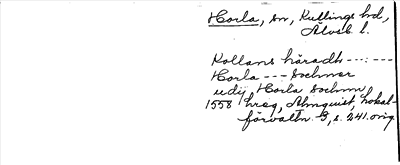 Horla, sn, Kullings hd,
Älvsb. l.
Kollans häradh --- : ---
Horla --- Sochner
udij Horla Sochnn,
1558 hreg, Almquist, Lokal-
förvaltn. 3, s. 241. orig.